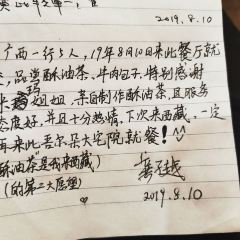 2019.8.10
广西一行5人,19年8月10日来此餐厅就
,品尝酥油茶、牛肉包子,特别感谢
玛
姐姐,亲自制作酥油茶且服务
态度好,并且十分热情,下次来西藏,一定
再来此吾尔朵大宅院就餐!
酥油茶"是我来西藏)
(的第二大愿望)
2019.8.10